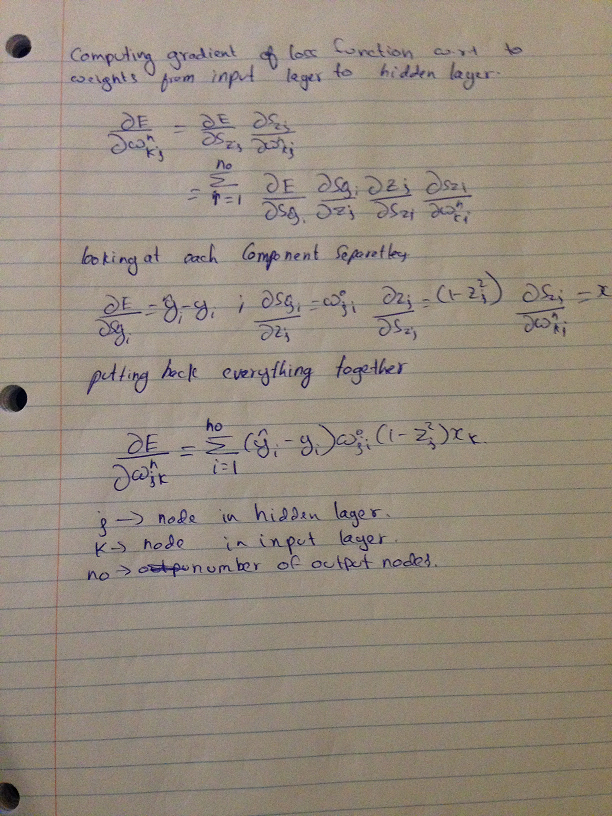 Computing gradient of loss function w.r.t to
weights from input layer to hidden layer.
∂E/∂ω^h_kj = ∂E/∂S_zj ∂S_zj/∂ω^h_kj
= Σ^no_i=1 ∂E/∂Sŷ_i ∂Sŷ_i/∂z_j ∂z_j/∂S_zj ∂S_zj/∂ω^h_kj
looking at each Component Separetley
∂E/∂Sŷ_i = ŷ_i - y_i ; ∂Sŷ_i/∂z_j = ω^o_ji ∂z_j/∂S_zj = (1-z_j^2) ∂S_zj/∂ω^h_kj = x
putting back everything together
∂E/∂ω^h_jk = Σ^no_i=1 (ŷ_i - y_i) ω^o_ji (1-z_j^2) x_k.
j → node in hidden layer.
k → node in input layer.
no → number of output nodes.